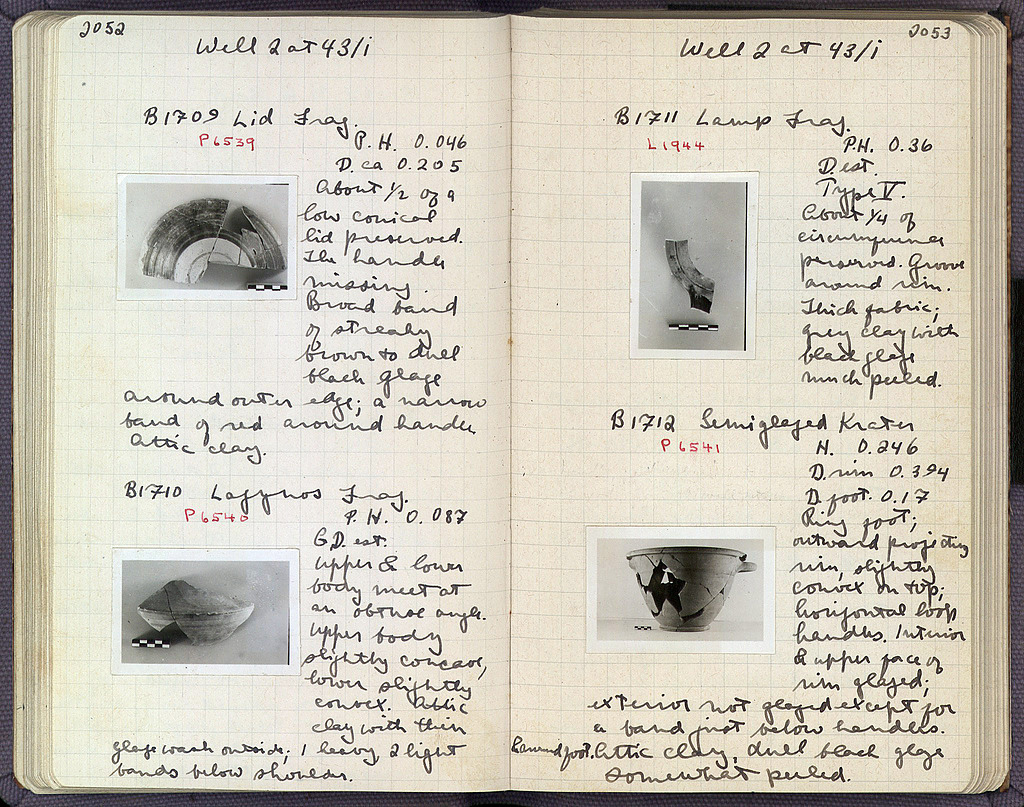 2052
Well 2 at 43/i
B1709 Lid Frag.
P 6539
P. H. 0.046
D. ca 0.205
About 1/2 of a
low conical
lid preserved.
The handle
missing.
Broad band
of streaky
brown to dull
black glaze
around outer edge; a narrow
band of red around handle.
Attic clay.
B1710 Lagynos Frag.
P 6540
P. H. 0.087
G.D. est.
Upper & lower
body meet at
an obtuse angle.
Upper body
slightly concave,
lower slightly
convex. Attic
clay with thin
glaze wash outside; 1 heavy, 2 light
bands below shoulder.
2053
Well 2 at 43/i
B1711 Lamp Frag.
L 1944
P.H. 0.36
D. est.
Type V.
About 1/4 of
circumference
preserved. Groove
around rim.
Thick fabric;
grey clay with
black glaze
much peeled.
B1712 Semiglazed Krater
P 6541
H. 0.246
D. rim 0.394
D. foot. 0.17
Ring foot;
outward projecting
rim, slightly
convex on top;
horizontal loop
handles. Interior
& upper face of
rim glazed;
exterior not glazed except for
a band just below handles.
& around foot. Attic clay, dull black glaze
somewhat peeled.